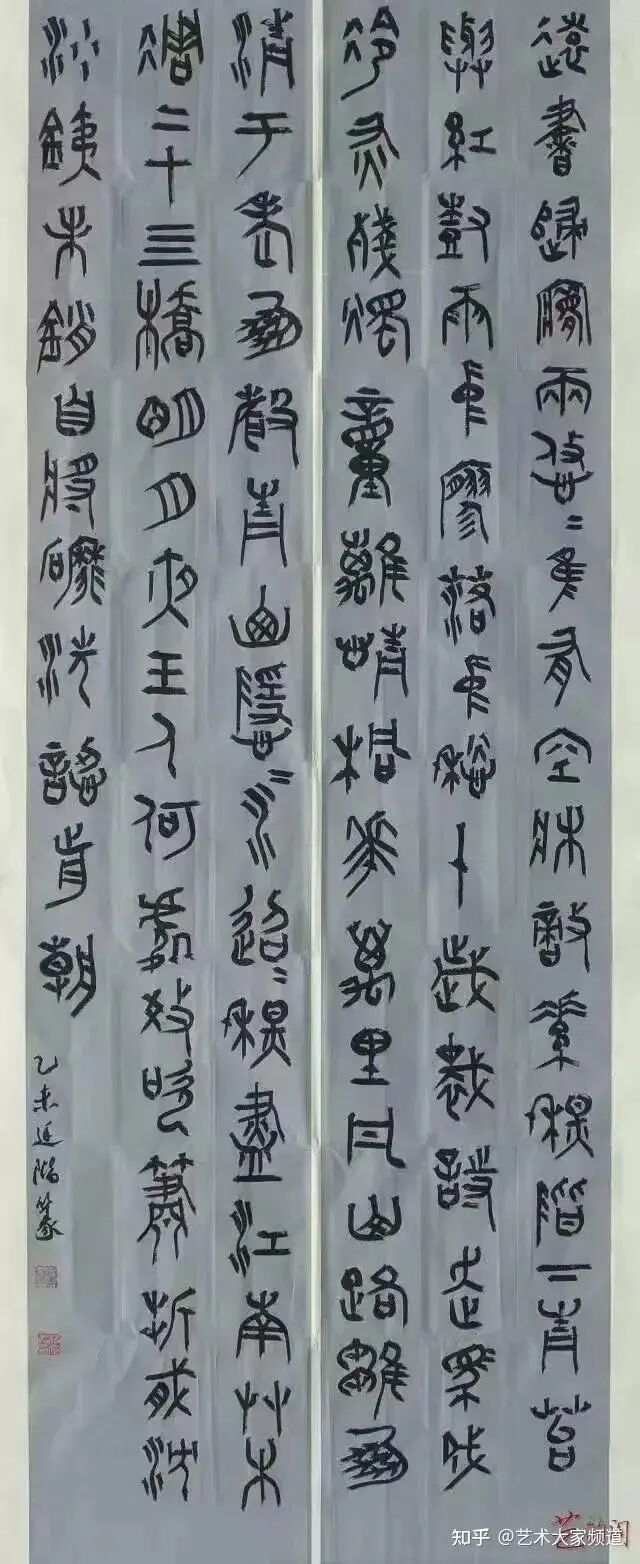 遠書歸夢兩悠悠隻有空床敵素秋階下青苔
與紅樹雨中寥落中愁十歲裁詩走馬成
冷灰殘燭動離情桐花萬里丹山路雛鳳
清于老鳳聲青山隱隱水迢迢秋盡江南草木
凋二十四橋明月夜玉人何處教吹簫折戟沉
沙鐵未銷自將磨洗認前朝
乙未廷 篆
知乎 @艺术大家频道